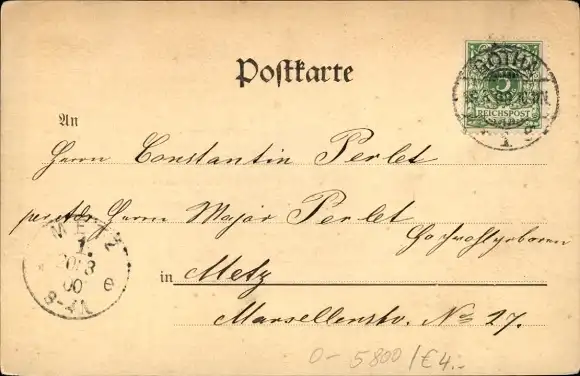 Postkarte
GOTHA
5
REICHSPOST
1
An
Herrn Constantin Perlet
per Adr. Herrn Major Perlet
Hochwohlgeboren
METZ
1.
20/3
00
8-9V
in Metz
Marsellenstr. No 27.
0- 5800/€4.-